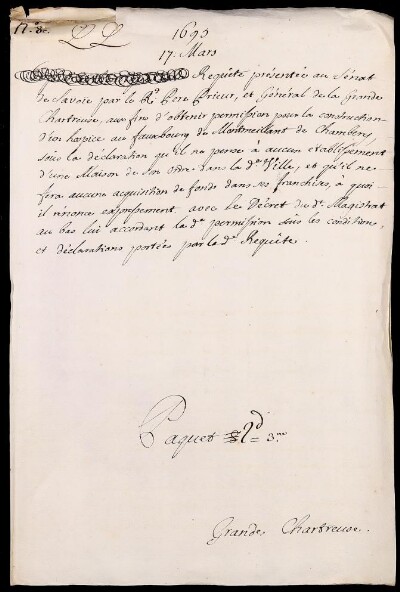 LL
1695
17. Mars
Requête présentée au Sénat
de Savoie par le Rd. Pere Prieur, et Général de la Grande
Chartreuse, aux fins d'obtenir permission pour la construction
d'un hospice au fauxbourg de Montmeillant de Chambéry,
sous la déclaration qu'il ne pense à aucun établissement
d'une Maison de son ordre dans la de. Ville, et qu'il ne
fera aucune acquisition de fonds dans ses franchises, à quoi
il rénonce expressement. avec le Décret du dt. Magistrat
au bas lui accordant la de. permission sous les conditions,
et déclarations portées par la de. Requête.
Paquet 3.me
Grande Chartreuse.